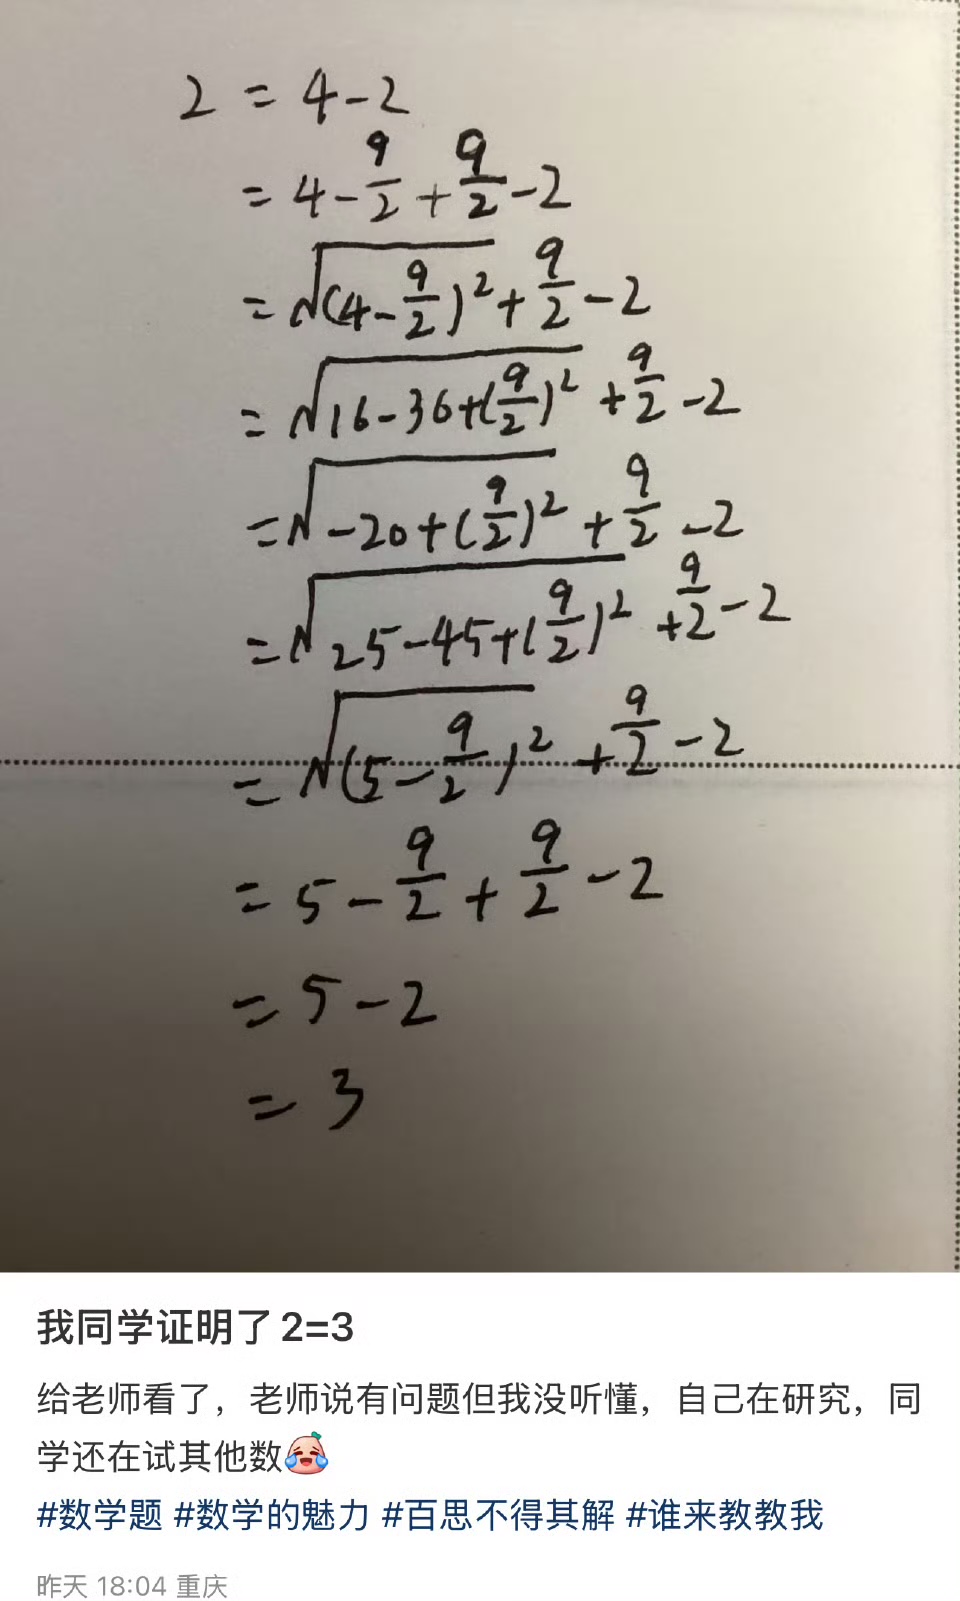 2 = 4-2
= 4-9/2+9/2-2
= √(4-9/2)²+9/2-2
= √16-36+(9/2)²+9/2-2
= √-20+(9/2)²+9/2-2
= √25-45+(9/2)²+9/2-2
= √(5-9/2)²+9/2-2
= 5-9/2+9/2-2
= 5-2
= 3
我同学证明了2=3
给老师看了，老师说有问题但我没听懂，自己在研究，同
学还在试其他数
#数学题 #数学的魅力 #百思不得其解 #谁来教教我
昨天 18:04 重庆